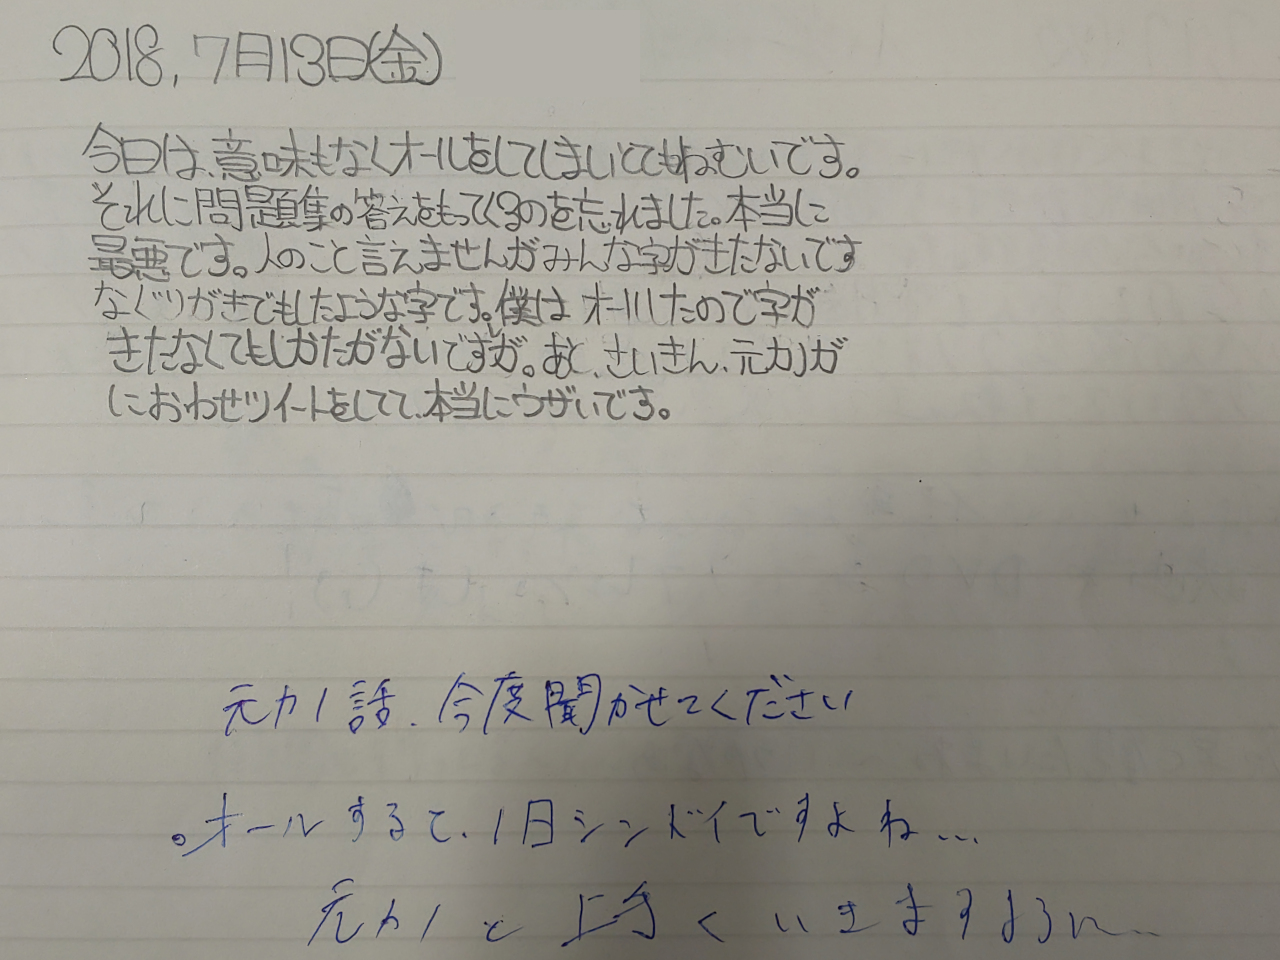 2018, 7月13日(金)
今日は、意味もなくオールをしてしまいとてもねむいです。
それに問題集の答えをもってくるのを忘れました。本当に
最悪です。人のこと言えませんがみんな字がきたないです
なぐりがきでもしたような字です。僕はオールしたので字が
きたなくてもしかたがないですが。あと、さいきん、元カノが
におわせツイートをしてて、本当にウザいです。
元カノ話、今度聞かせてください
。オールすると、1日シンドイですよね...
元カノと上手くいきますように...